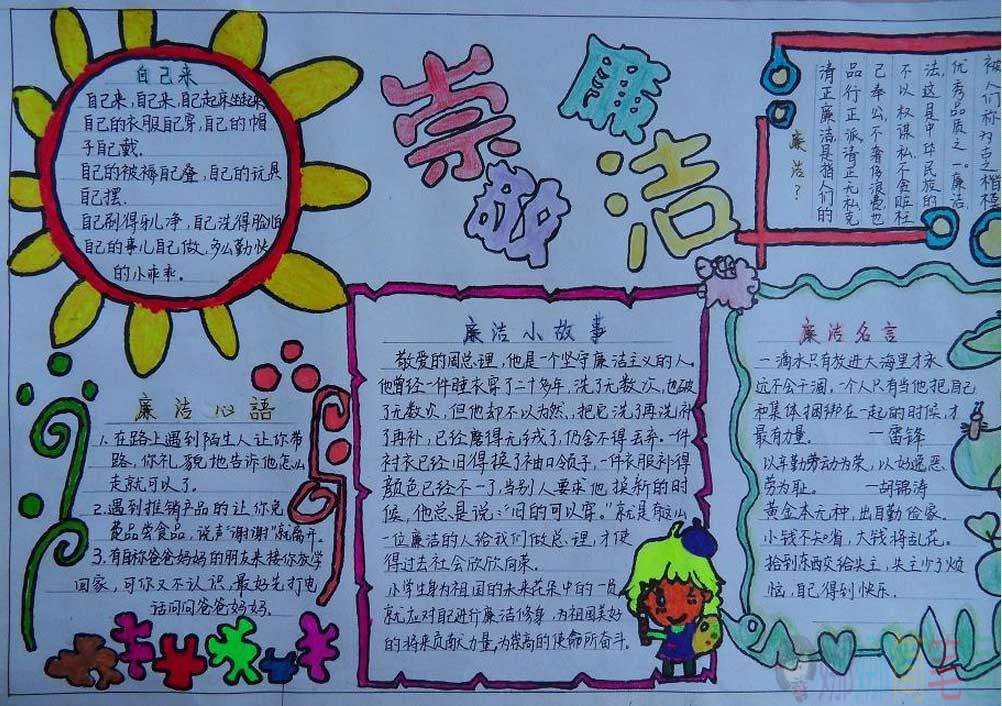 自己来
自己来,自己来,自己起床坐起来
自己的衣服自己穿,自己的帽
子自己戴.
自己的被褥自己叠,自己的玩具
自己摆.
自己刷得牙儿净,自己洗得脸白
自己的事儿自己做,多么勤快
的小乖乖。
崇廉
敬洁
廉洁?
清正廉洁,是指人们的
品行正派,清正无私克
己奉公,不奢侈浪费也
不以权谋私,不贪赃枉
法,这是中华民族的
优秀品质之一。廉洁
被人们称为点之楷模
廉洁心語
1.在路上遇到陌生人让你带
路,你礼貌地告诉他怎么
走就可以了。
2.遇到推销产品的让你免
费品尝食品,说声“谢谢”就离开。
3.有自称爸爸妈妈的朋友来接你放学
回家,可你又不认识,最好先打电
话问问爸爸妈妈.
廉洁小故事
敬爱的周总理,他是一个坚守廉洁主义的人。
他曾经一件睡衣穿了二十多年,洗了无数次,也破
了无数次,但他却不以为然,把它洗了再洗,补
了再补,已经磨得无绒了,仍舍不得丢弃。一件
衬衣已经旧得换了袖口领子,一件衣服补得
颜色已经不一了,当别人要求他换新的时
候,他总是说:“旧的可以穿。”就是有这么
一位廉洁的人给我们做总理,才使
得过去社会欣欣向荣。
小学生身为祖国的未来花朵中的一员
就应对自己进行廉洁修身,为祖国美好
的将来贡献力量,为崇高的使命所奋斗。
廉洁名言
一滴水只有放进大海里才永
远不会干涸,一个人只有当他把自己
和集体捆绑在一起的时候,才
最有力量。 —雷锋
以辛勤劳动为荣,以好逸恶
劳为耻。 —胡锦涛
黄金本无种,出自勤俭家。
小钱不去唷,大钱将乱花。
拾到东西交给失主,失主少了烦
恼,自己得到快乐.